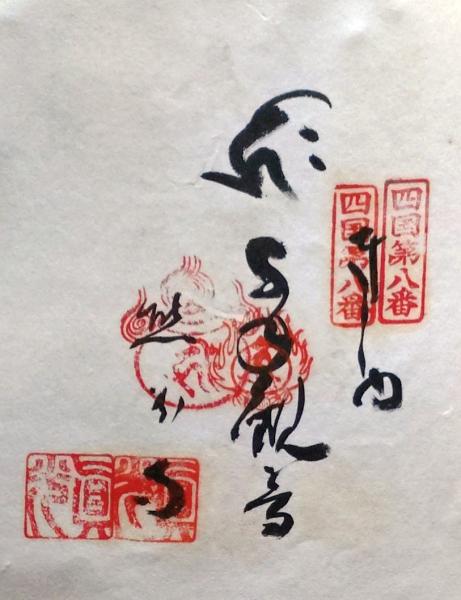 四国第八番
四国第八番
奉納
千手観音
熊谷寺